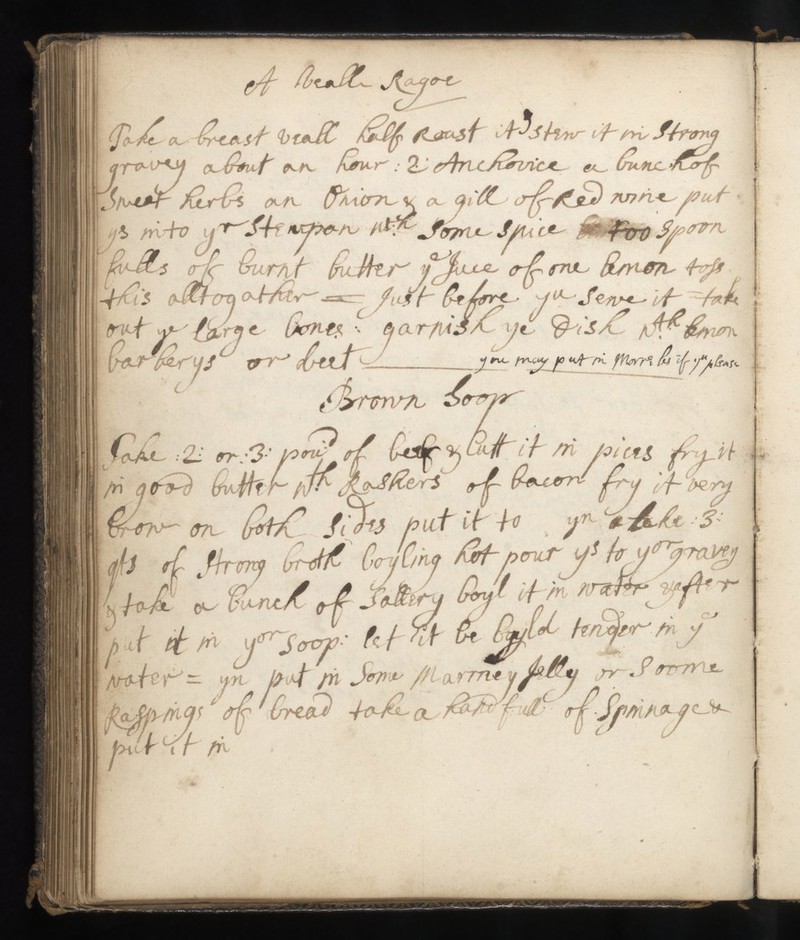 A Veall Ragoe
Take a breast veall half Roast it & stew it in Strong
gravey about an hour : 2: Anchovice a bunch of
Sweet herbs an Onion & a gill of Red wine put
ys into yr Stewpan wth Some Spice too Spoon
fulls of burnt butter ye Juce of one lemon toss
this alltogather = Just before yu Serve it = take
out ye large bones : garnish ye Dish wth lemon
barberys or beet you may put in Morrells if yu please
Brown Soop
Take :2: or :3: poud of beef & Cutt it in pices fry it
in good butter wth Raskers of bacon fry it very
brow on both Sides put it to yn take :3:
qts of Strong broth boyling hot pour ys to yor gravey
& take a bunch of Sallery boyl it in water & after
put it in yor Soop: let it be boyld tender in ye
water = yn put in Some Jelly or Soome
Raspings of bread take a handfull of Spinnage &
put it in